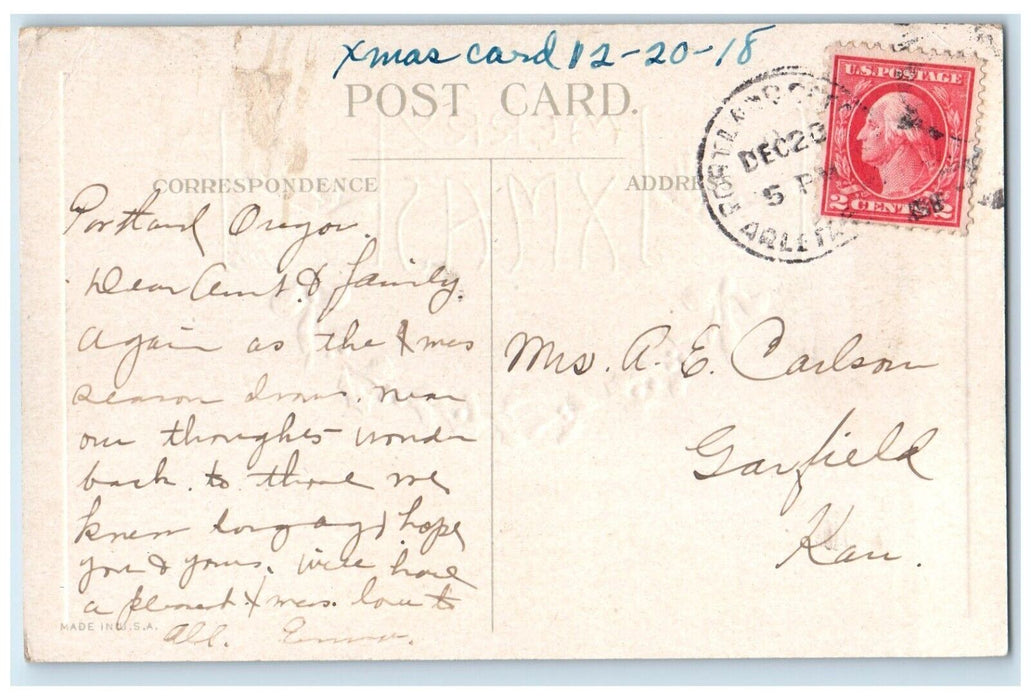 Xmas card 12-20-18
POST CARD.
U.S. POSTAGE
2 CENTS 2
PORTLAND
DEC 20
5 PM
CORRESPONDENCE
ADDRESS
Portland Oregon.
Dear Aunt & family.
Again as the Xmas
season draws near
our thoughts wonder
back to those we
knew long ago, hope
you & yours. will have
a pleasant Xmas. love to
All. Emma.
Mrs. A. E. Carlson
Garfield
Kan.
MADE IN U.S.A.
MERRY
XMAS